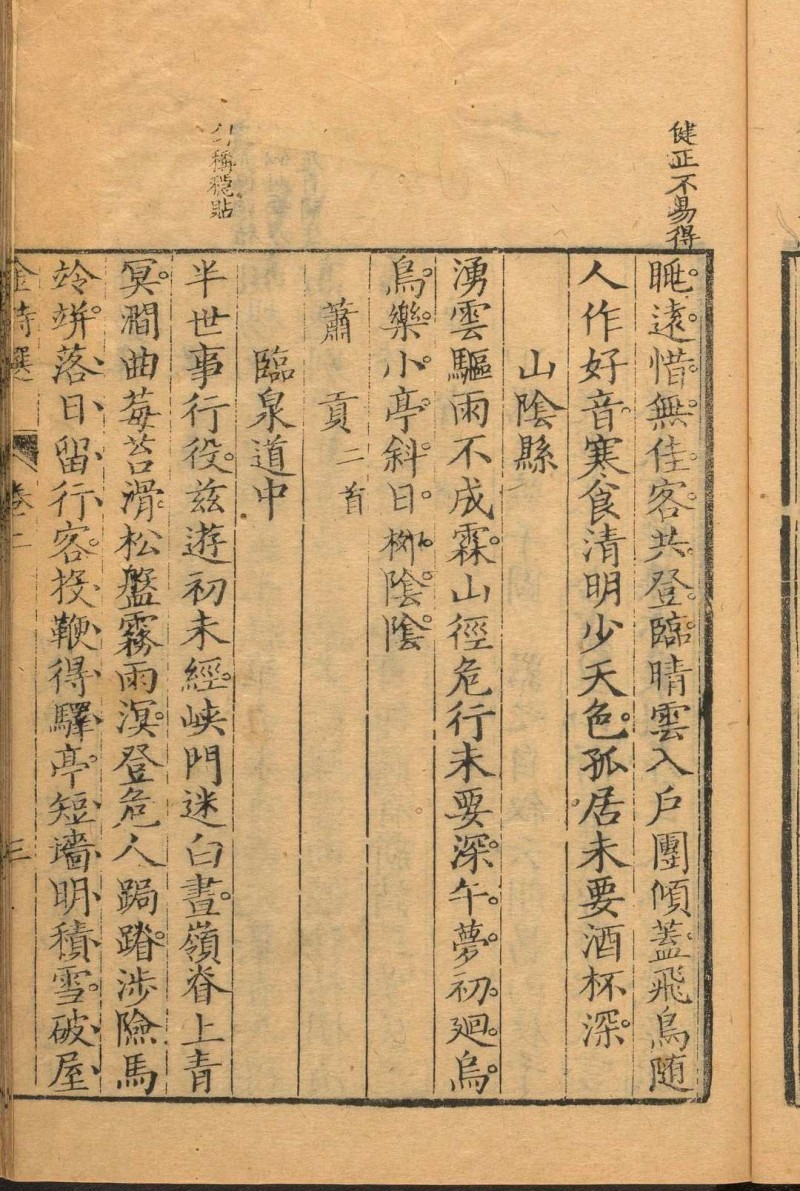 健正不易得
眺遠惜無佳客共登臨晴雲入戶團傾蓋飛鳥隨
人作好音寒食清明少天色孤居未要酒杯深
山陰縣
湧雲驅雨不成霖山徑危行未要深午夢初廻烏
烏樂小亭斜日柳陰陰
蕭貢二首
臨泉道中
稱穩貼
半世事行役茲遊初未經峽門迷白晝嶺脊上青
冥澗曲莓苔滑松盤霧雨溟登危人跼蹐涉險馬
竛竮落日留行客投鞭得驛亭短墻明積雪破屋
金詩選
卷二
三